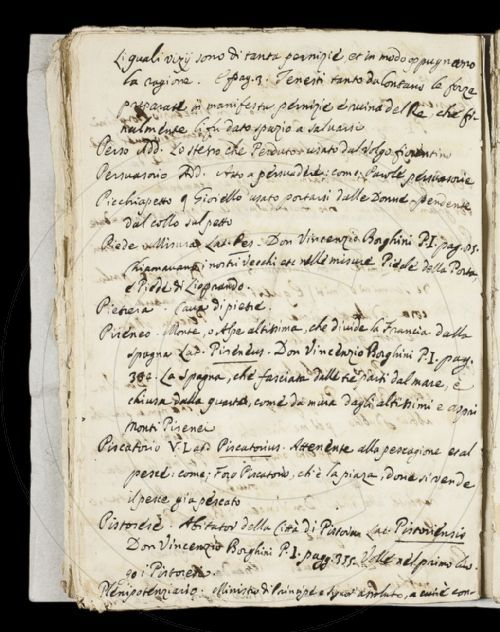 Li quali vizij sono di tanta pernizie et in modo oppugnano
la ragione. E pag. 3. Tenesti tanto da lontano le forze
preparate in manifesta pernizie e ruina del Re che fi-
nalmente li fu dato spazio a salvarsi
Perso Add. Lo stesso che Perduto usato dal volgo fiorentino
Persuasorio Add. atto a persuadere; come; Parole persuasorie
Picchiapetto q Gioiello usato portarsi dalle Donne pendente
dal collo sul petto
Piede Misura Lat. Pes. Don Vincenzio Borghini P. I. pag.
chiamavano i nostri vecchi etc nelle misure Piede della Porta,
e Piede di Lioprando.
Pietriera. Cava di pietre.
Pireneo. Monte, o Alpe altissima, che divide la Francia dalla
Spagna Lat. Pireneus. Don Vincenzio Borghini P. I. pag.
La Spagna, che fasciata dalle tre parti dal mare, è
chiusa dalla quarta, come da mura dagli altissimi e aspri
Monti Pirenei
Piscatorio V. Lat. Piscatorius. Attenente alla pescagione et al
pesce: come; Foro Piscatorio, ch'è la piazza, dove si vende
il pesce già pescato
Pistorese. Abitator della Città di Pistoia Lat. Pistoriensis
Don Vincenzio Borghini P. I. pag. 355. Volle nel primo
i Pistoresi.
Plenipotenziario. Ministro di Principe e Sigr assoluto, a cui è con-